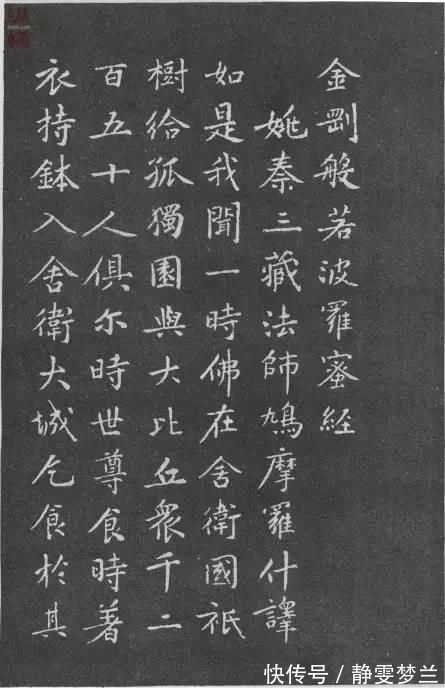 金剛般若波羅蜜經
姚秦三藏法師鳩摩羅什譯
如是我聞一時佛在舍衛國祇
樹給孤獨園與大比丘眾千二
百五十人俱尓時世尊食時著
衣持鉢入舍衛大城乞食於其
快传号／静雯梦兰